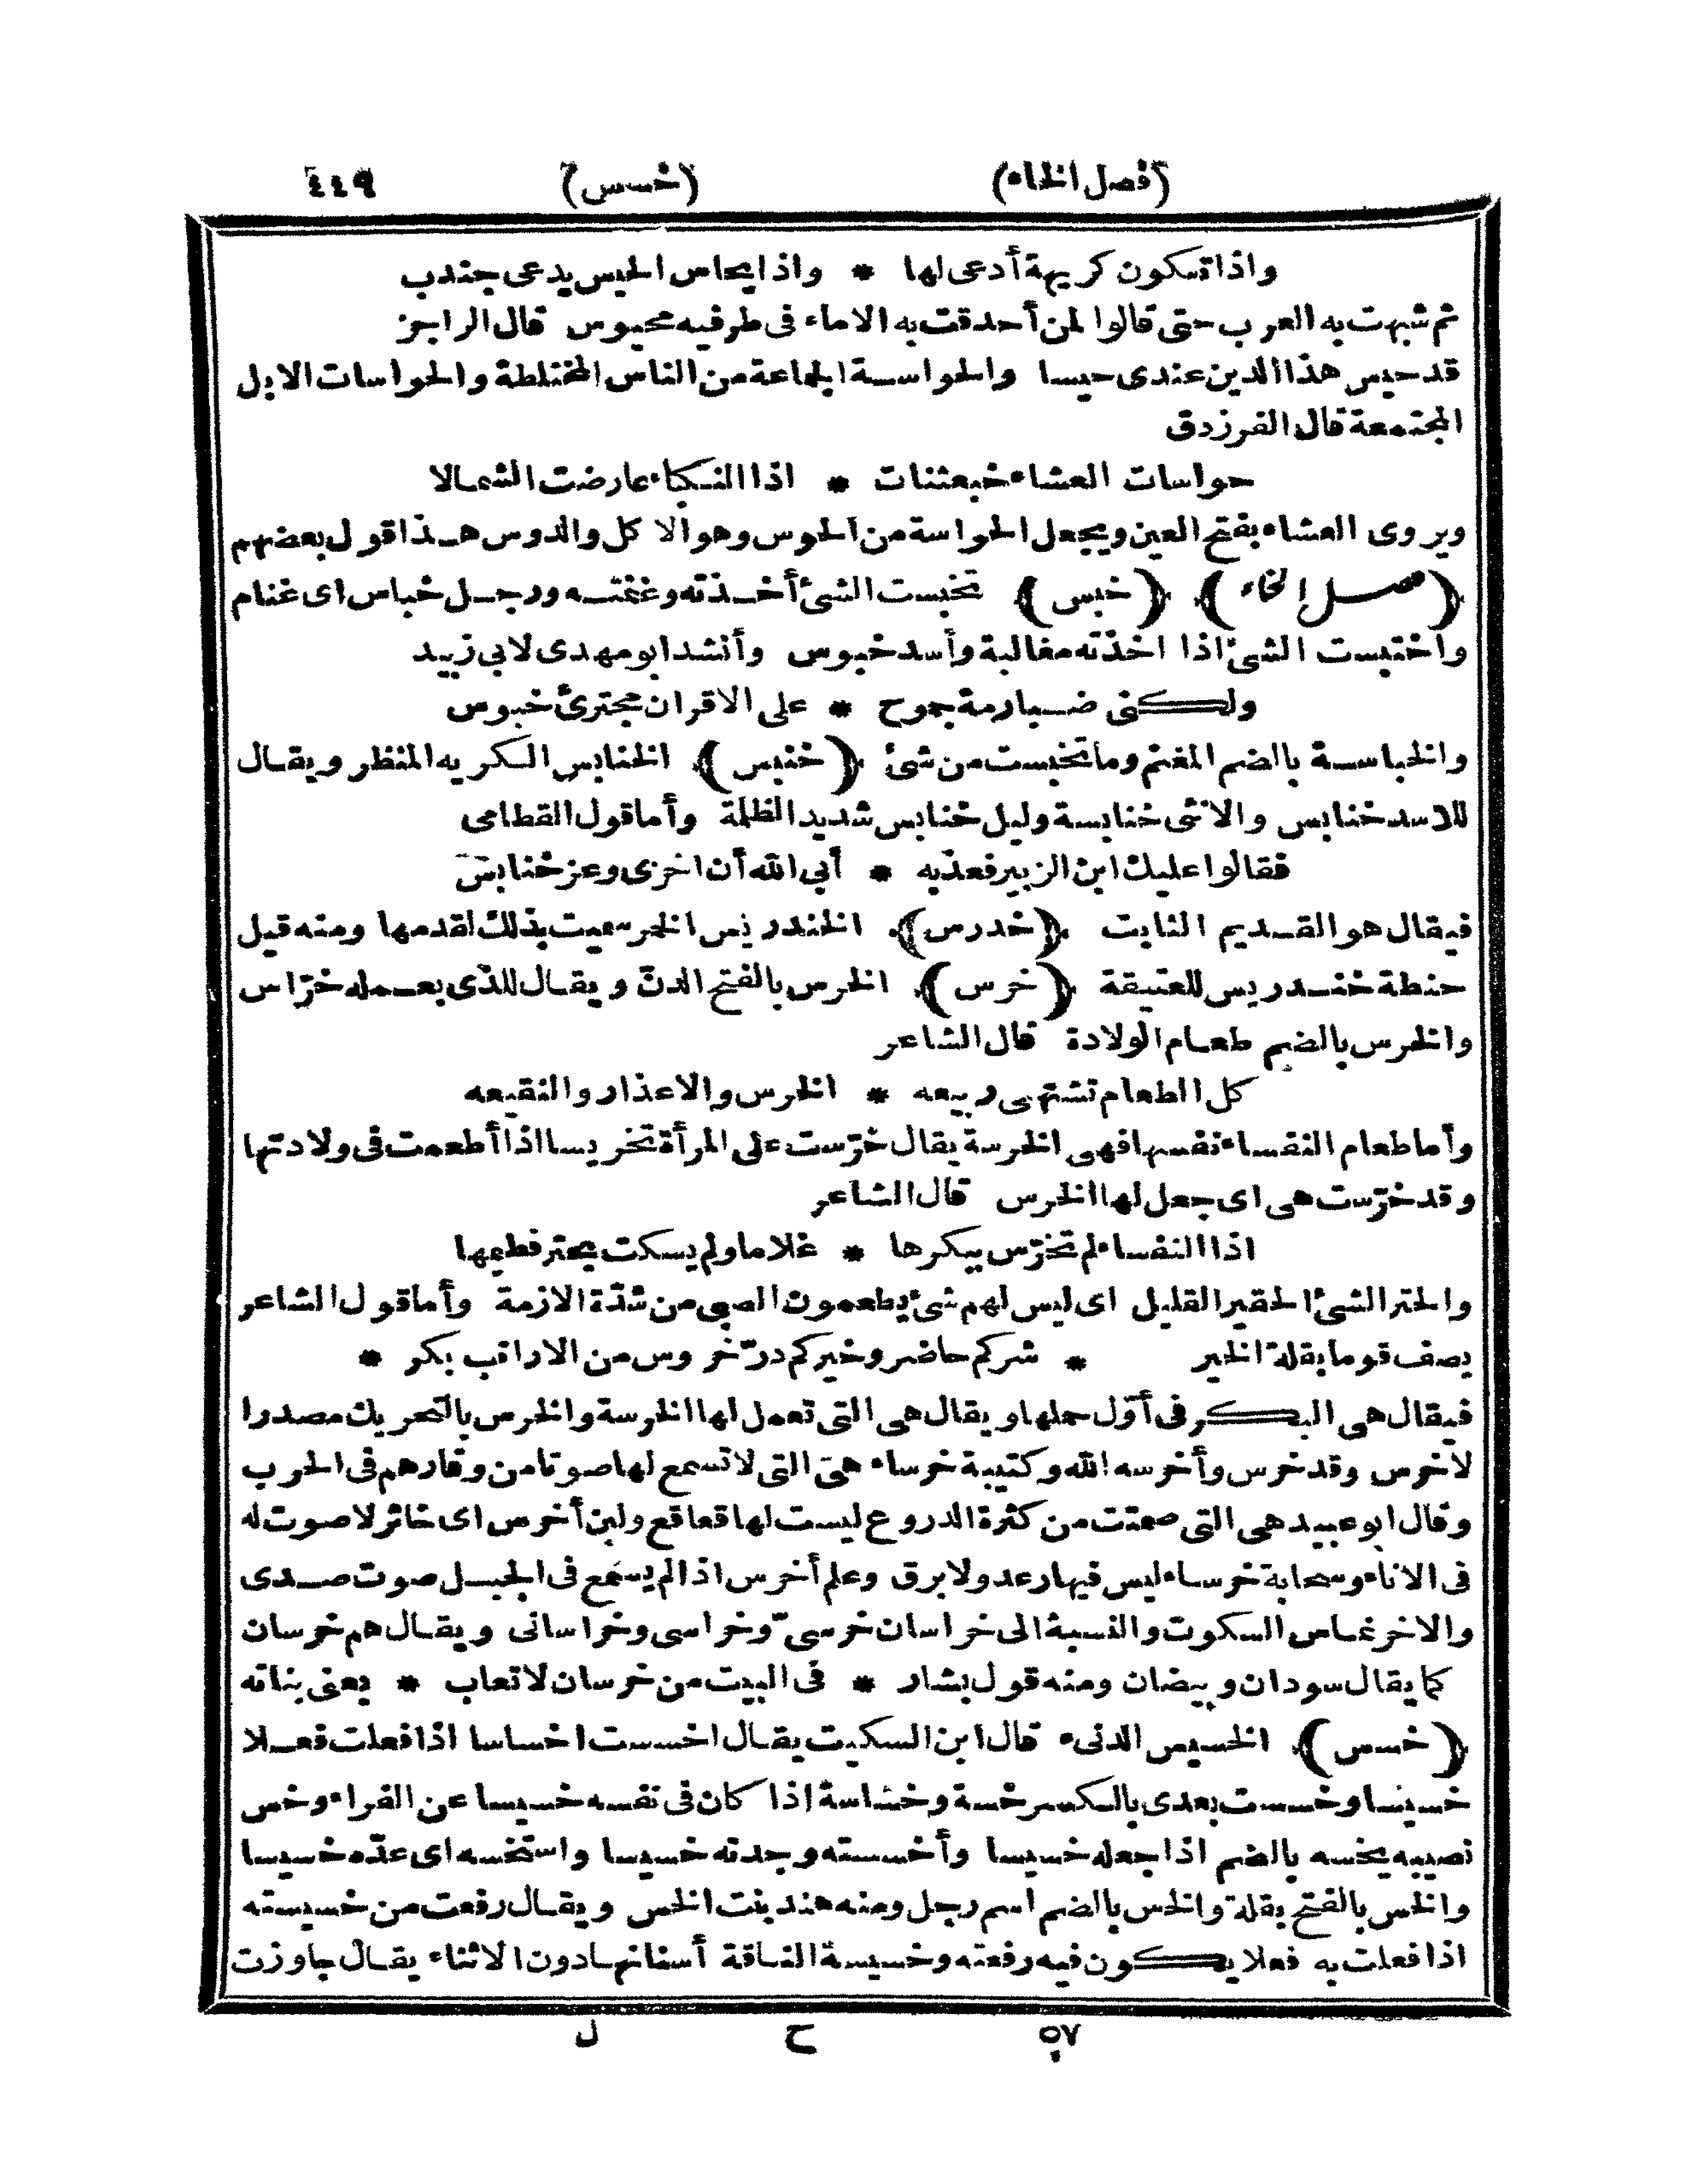 (فصل الخاء) (خسس) ٤٤٩
واذا تكون كريهة أدعى لها * واذا يحاس الحيس يدعى جندب
ثم شبهت به العرب حتى قالوا لمن أحدقت به الاماء فى طرفيه محيوس قال الراجز
قد حيس هذا الدين عندى حيسا والحواسة الجماعة من الناس المختلطة والحواسات الابل
المجتمعة قال الفرزدق
حواسات العشاء خبعثنات * اذا النكباء عارضت الشمالا
ويروى العشاء بفتح العين ويجعل الحواسة من الحوس وهو الاكل والدوس هذا قول بعضهم
(فصل الخاء) (خبس) تخبست الشئ أخذته وغنمته ورجل خباس اى غنام
واختبست الشئ اذا اخذته مغالبة وأسد خبوس وأنشد ابو مهدى لابي زبيد
ولكنى ضبارمة جموح * على الاقران مجترئ خبوس
والخباسة بالضم المغنم وما تخبست من شئ (خنبس) الخنابس الكريه المنظر ويقال
للاسد خنابس والانثى خنابسة وليل خنابس شديد الظلمة وأما قول القطامى
فقالوا عليك ابن الزبير فعذبه * أبي الله أن اخزى وعز خنابس
فيقال هو القديم الثابت (خدرس) الخندريس الخمر سميت بذلك لقدمها ومنه قيل
حنطة خندريس للعتيقة (خرس) الخرس بالفتح الدنّ ويقال للذى يعمله خرّاس
والخرس بالضم طعام الولادة قال الشاعر
كل الطعام تشتهى ربيعه * الخرس والاعذار والنقيعه
وأما طعام النفساء نفسها فهى الخرسة يقال خرّست على المرأة تخريسا اذا أطعمت فى ولادتها
وقد خرّست هى اى جعل لها الخرس قال الشاعر
اذا النفساء لم تخرّس ببكرها * غلاما ولم يسكت بحتر فطيمها
والحتر الشئ الحقير القليل اى ليس لهم شئ يطعمون الصبى من شدّة الازمة وأما قول الشاعر
يصف قوما بقلة الخير * شركم حاضر وخيركم درّ خروس من الارانب بكر *
فيقال هى البكر فى أوّل حملها ويقال هى التى تعمل لها الخرسة والخرس بالتحريك مصدر ا
لاخرس وقد خرس وأخرسه الله وكتيبة خرساء هى التى لا تسمع لها صوتا من وقارهم فى الحرب
وقال ابو عبيد هى التى صمتت من كثرة الدروع ليست لها قعاقع ولبن أخرس اى خاثر لا صوت له
فى الاناء وسحابة خرساء ليس فيها رعد ولا برق وعلم أخرس اذا لم يسمع فى الجبل صوت صدى
والاخرنماس السكوت والنسبة الى خراسان خرسىّ وخراسى وخراسانى ويقال هم خرسان
كما يقال سودان وبيضان ومنه قول بشار * فى البيت من خرسان لا تعاب * يعنى بناته
(خسس) الخسيس الدنىء قال ابن السكيت يقال اخسست اخساسا اذا فعلت فعلا
خسيسا وخسست بعدى بالكسر خسة وخساسة اذا كان فى نفسه خسيسا عن الفراء وخس
نصيبه يخسه بالضم اذا جعله خسيسا وأخسسته وجدته خسيسا واستخسه اى عدّه خسيسا
والخس بالفتح بقلة والخس بالضم اسم رجل ومنه هند بنت الخس ويقال رفعت من خسيسته
اذا فعلت به فعلا يكون فيه رفعته وخسيسة الناقة أسنانها دون الاثناء يقال جاوزت
٥٧ ح ل